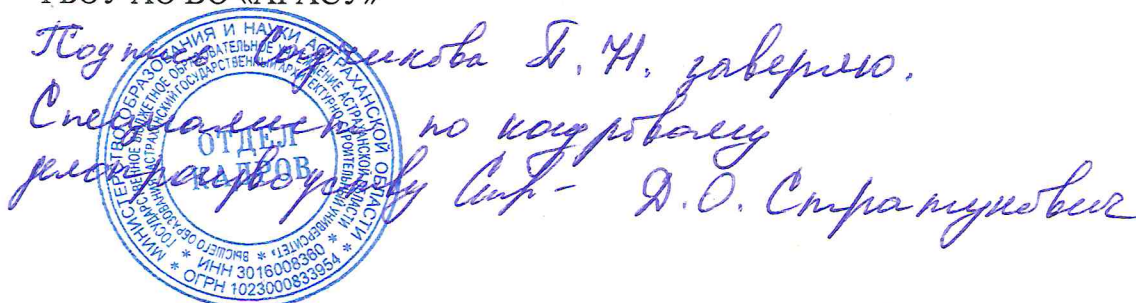 ГБОУ АО ВО «АГАСУ»
Подпись Садчикова П. Н. заверяю.
Специалист по кадровому
делопроизводству Д.О. Стратунович
МИНИСТЕРСТВО ОБРАЗОВАНИЯ И НАУКИ АСТРАХАНСКОЙ ОБЛАСТИ
* ИНН 3016008360 *
* ОГРН 1023000833954 *
ГОСУДАРСТВЕННОЕ БЮДЖЕТНОЕ ОБРАЗОВАТЕЛЬНОЕ УЧРЕЖДЕНИЕ АСТРАХАНСКОЙ ОБЛАСТИ
ВЫСШЕГО ОБРАЗОВАНИЯ
АСТРАХАНСКИЙ ГОСУДАРСТВЕННЫЙ АРХИТЕКТУРНО-СТРОИТЕЛЬНЫЙ УНИВЕРСИТЕТ»
ОТДЕЛ
КАДРОВ